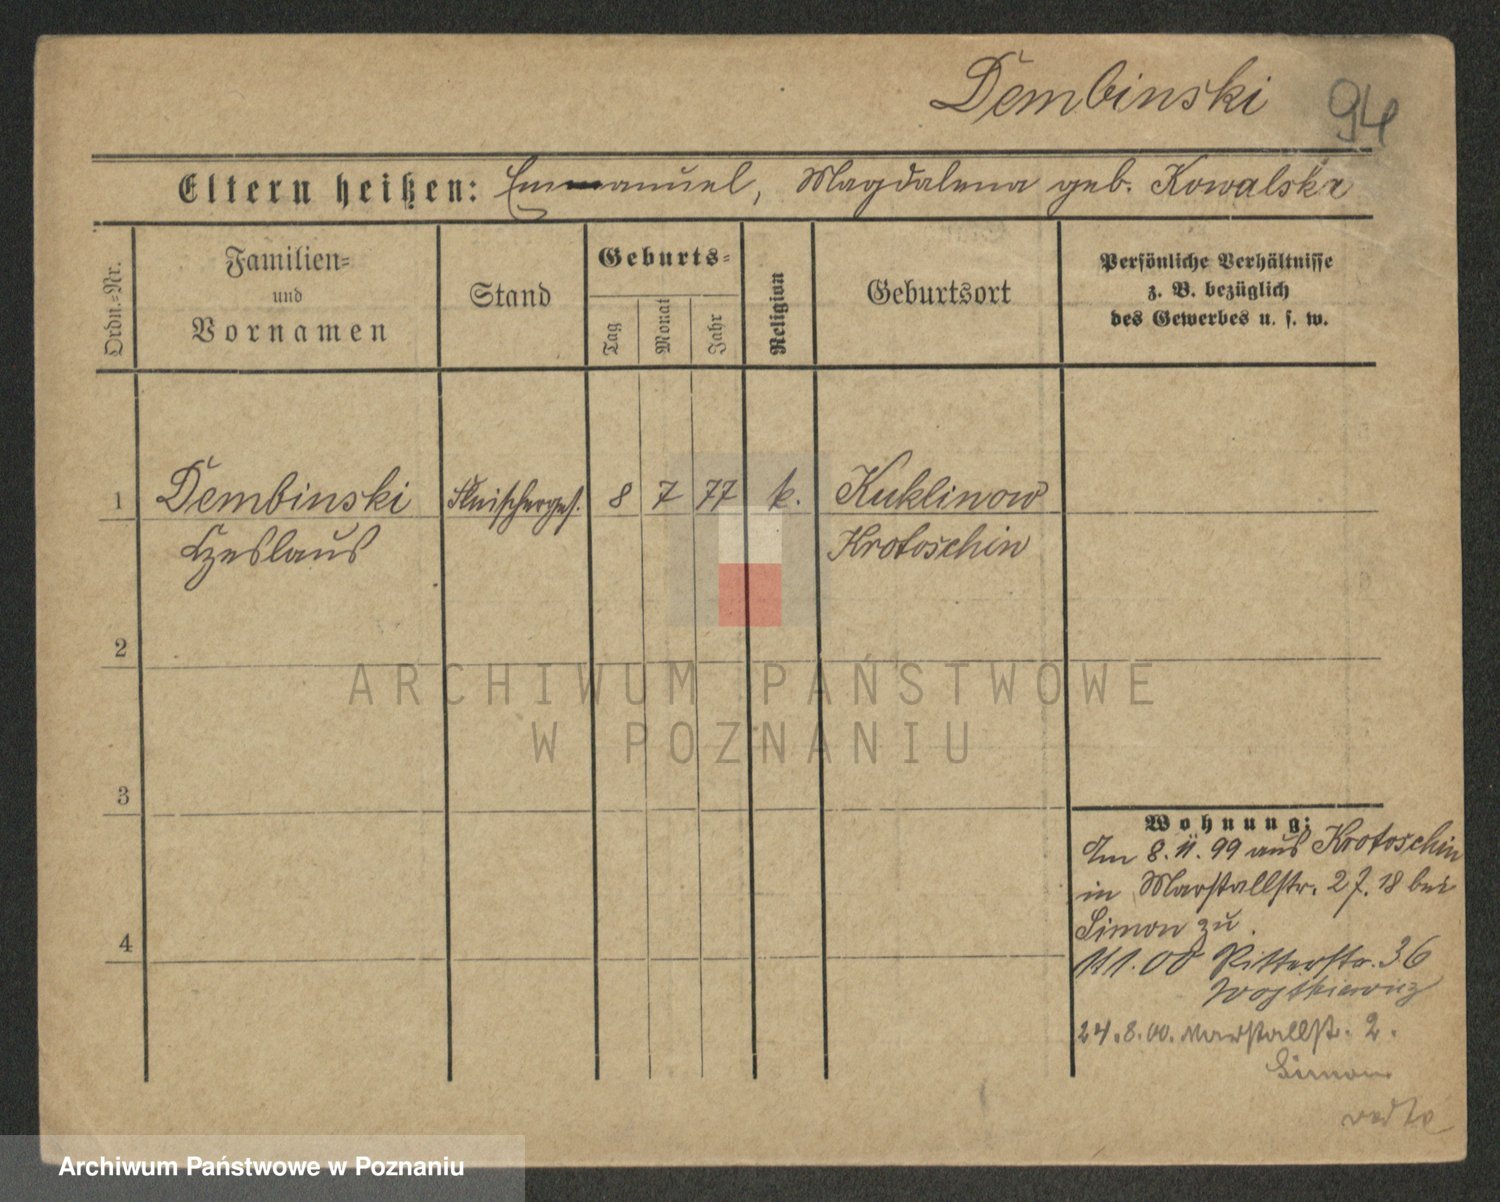 Dembinski
94
Eltern heißen: Emmanuel, Magdalena geb. Kowalska
Ordn.=Nr.
Familien=
und
Vornamen
Stand
Geburts=
Tag
Monat
Jahr
Religion
Geburtsort
Persönliche Verhältnisse
z. B. bezüglich
des Gewerbes u. s. w.
1 Dembinski Fleischerges. 8 7 77 k. Kuklinow
Czeslaus Krotoschin
2
ARCHIWUM PAŃSTWOWE
W POZNANIU
3
Wohnung:
Am 8. 11. 99 aus Krotoschin
in Marstallstr. 2 7. 18 bei
Simon zu.
4
00 Ritterstr. 36
24. 8. 00. Marstallst. 2.
Simon
Archiwum Państwowe w Poznaniu